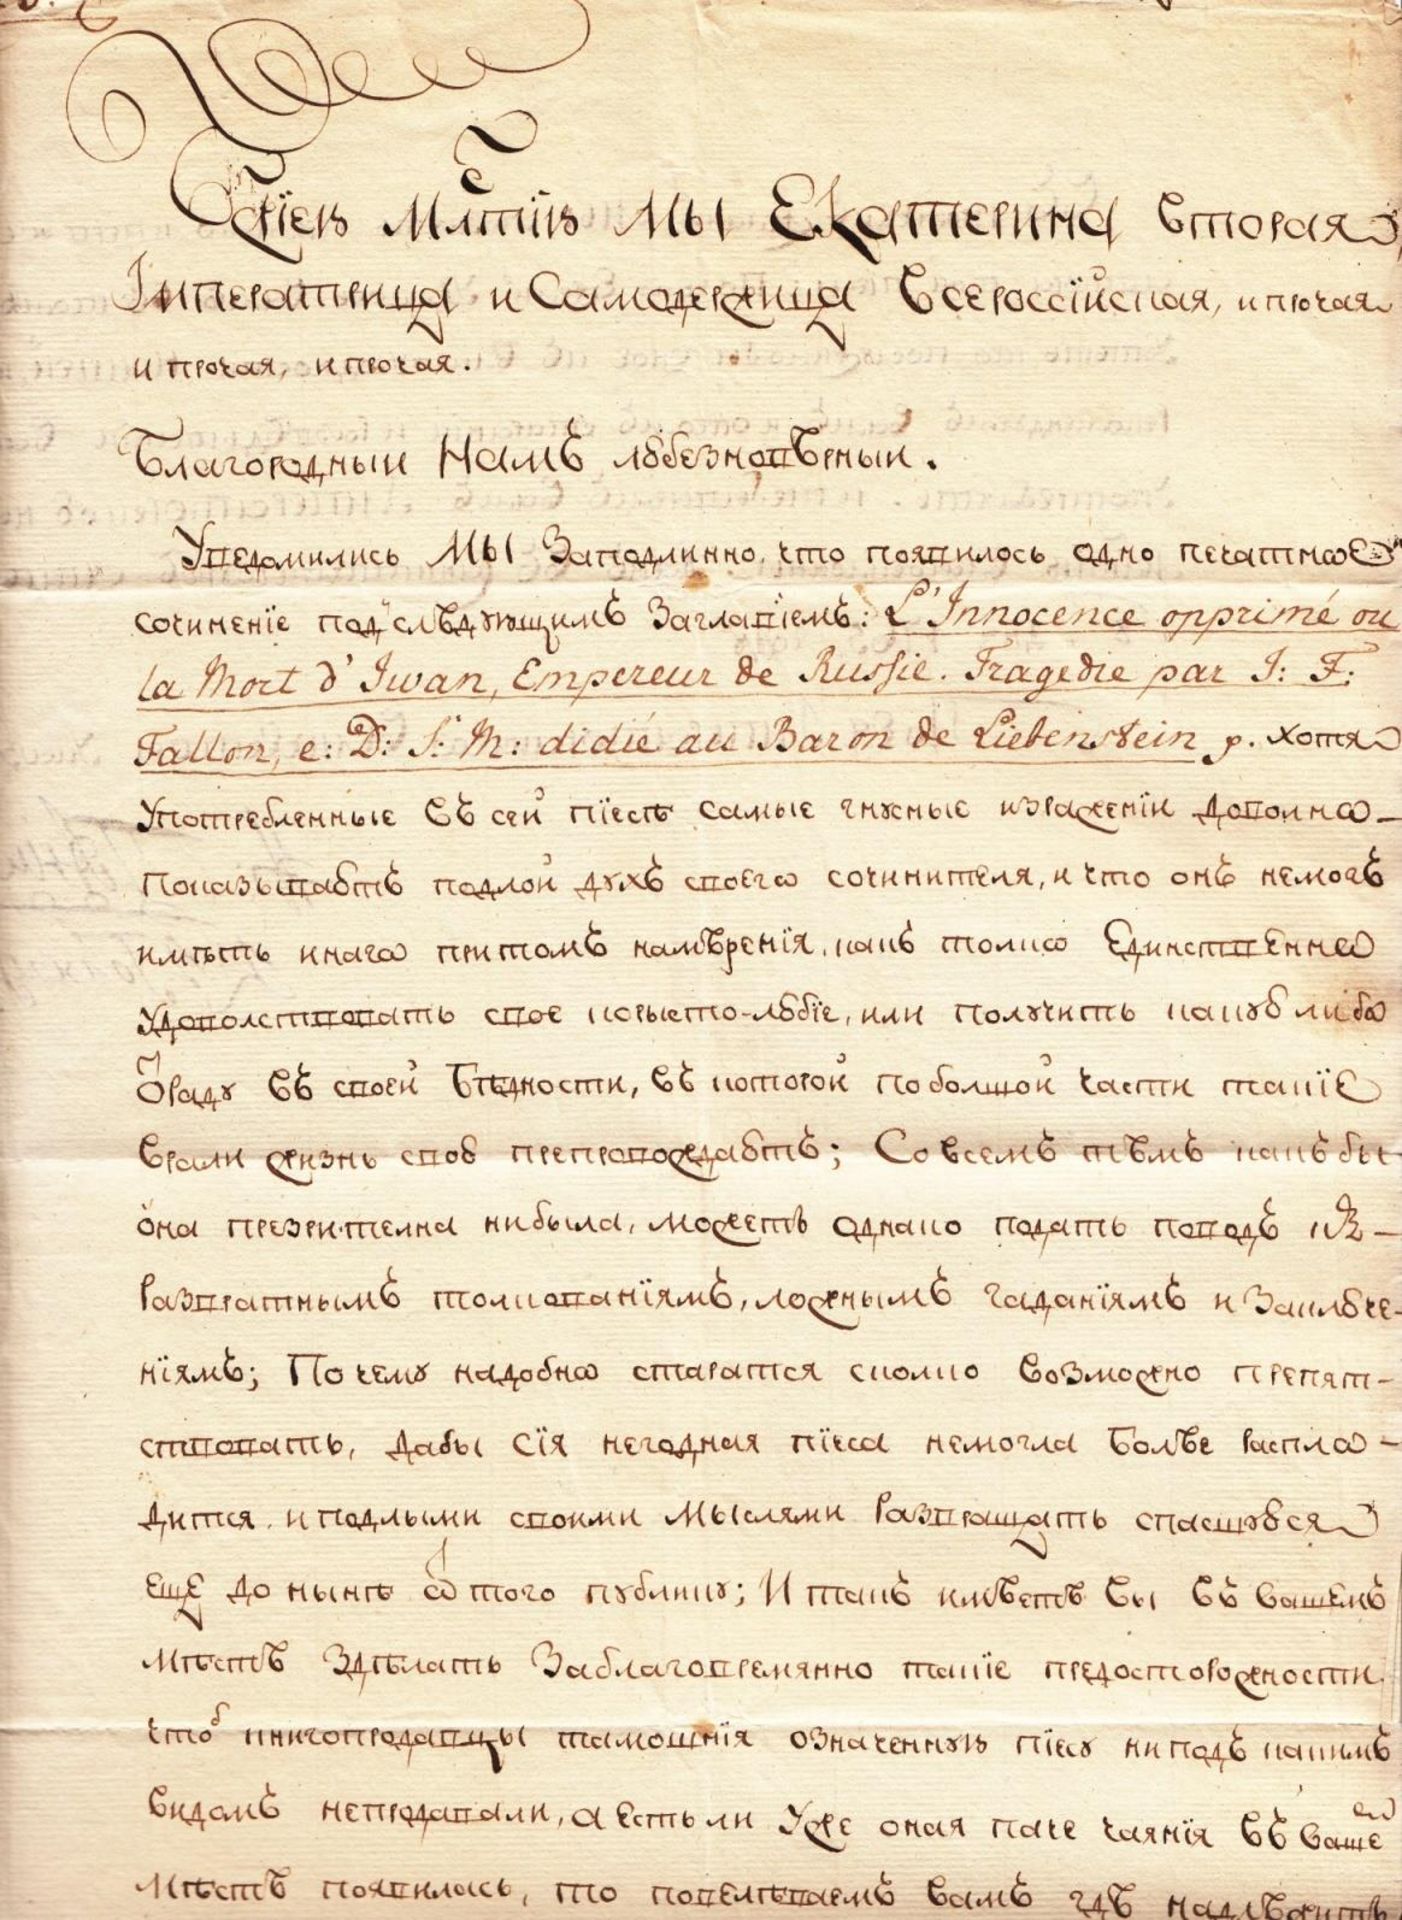 Бжїею Млстїю Мы Екатерина вторая,
Імператрица и Самодержица Всероссїйская, и прочая
и прочая, и прочая.
Благородный Намъ любезновѣрный.
Уведомились Мы Заподлинно, что появилось одно печатное
сочиненїе под слѣдующимъ Заглавїемъ: L'Innocence opprimé ou
la Mort d'Iwan, Empereur de Russie. Tragedie par J: F:
Fallon, e: D: S: M: didié au Baron de Liebenstein p. хотя
употребленные въ сей пїесѣ самые гнусные израженїи доволно
показываютъ подлой духъ своего сочинителя, и что онъ немогъ
имѣть инаго притомъ намѣренїя, какъ толко Единственно
удоволствовать свое корысто-любїе, или получить какую либо
Отраду въ своей Бѣдности, въ которой по болшой части такїе
врали жизнь свою препровождаютъ; Со всемъ тѣмъ какъ бы
она презрителна ни была, можетъ однако подать поводъ къ
Развратнымъ толкованїямъ, ложнымъ гаданїямъ и Заключе-
нїямъ; Почему надобно старатся сколко возможно препят-
ствовать, дабы сїя негодная пїеса немогла болѣе распло-
дится и подлыми своими мыслями Развращать спасшуюся
еще до нынѣ от того публику; И такъ имѣетѣ Вы въ вашемъ
мѣстѣ Здѣлать Заблаговремянно такїе предосторожности
чтоб книгопродавцы тамошнїя означенную пїесу ни подъ какимъ
видомъ непродавали, а естьли уже оная паче чаянїя въ вашем
мѣстѣ появилась, то повелѣваемъ вамъ гдѣ надлѣжитъ